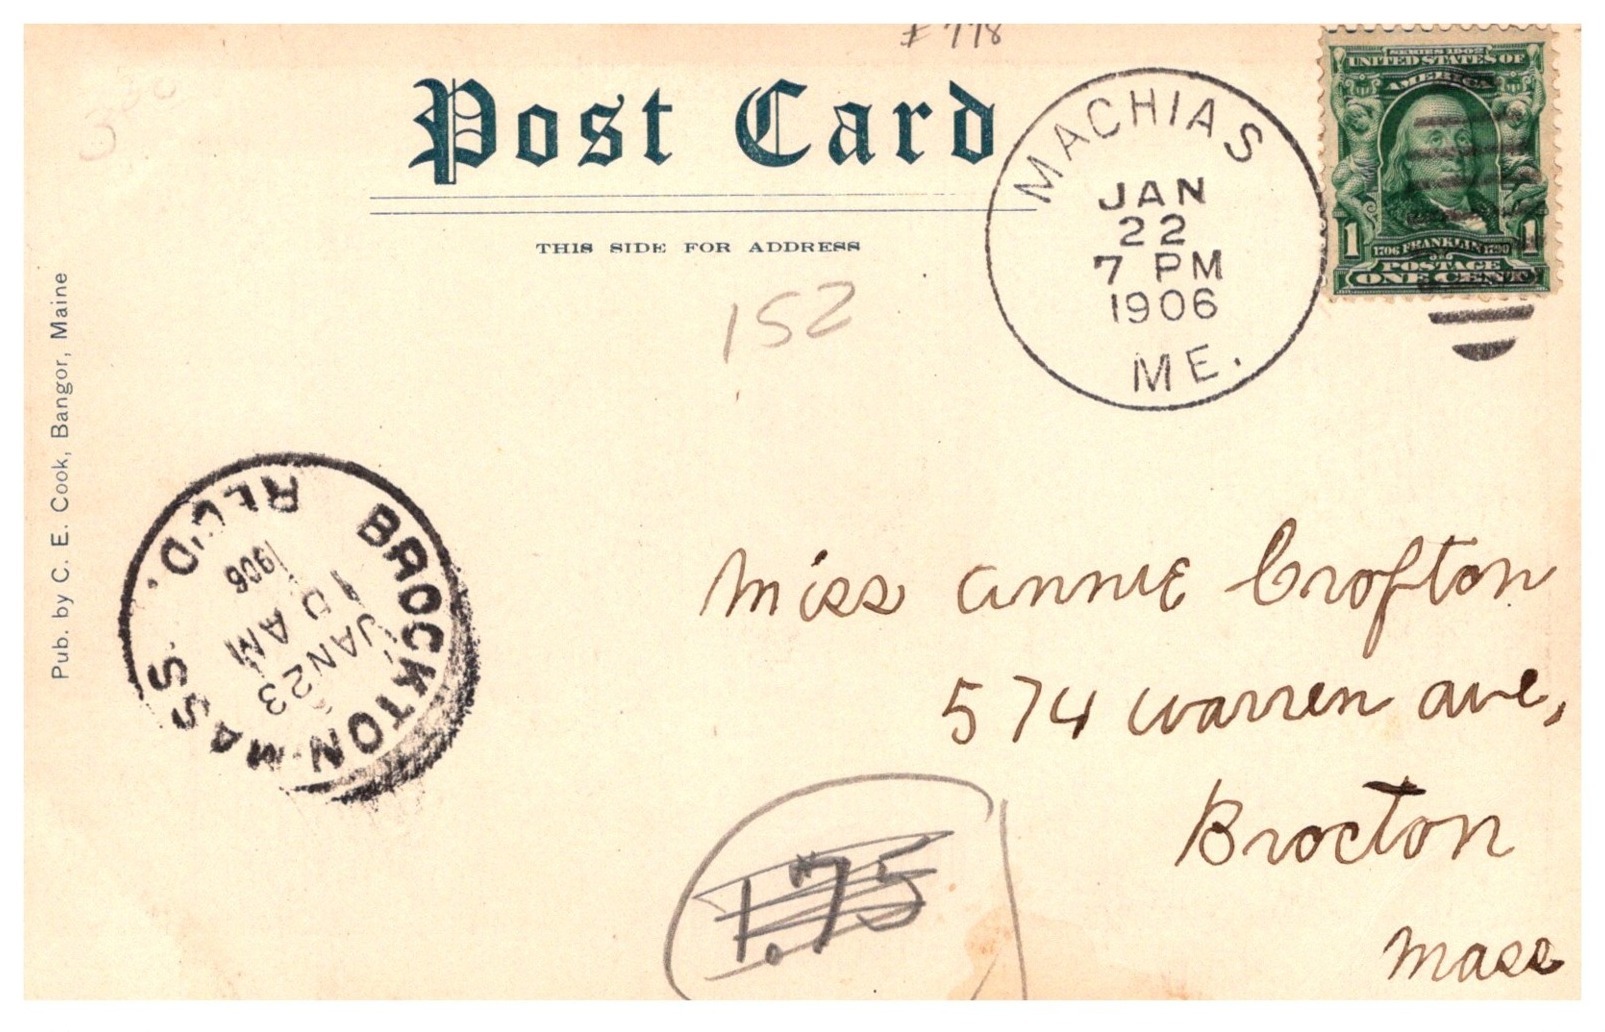 # 778
Post Card
THIS SIDE FOR ADDRESS
152
MACHIAS
JAN
22
7 PM
1906
ME.
SERIES 1902
UNITED STATES OF
AMERICA
1 1706 FRANKLIN 1790 1
POSTAGE
ONE CENT
Pub. by C. E. Cook, Bangor, Maine
BROCKTON MASS.
REC'D.
JAN 23
10 AM
1906
Miss Annie Crofton
574 Warren ave,
Brocton
Mass
1.75